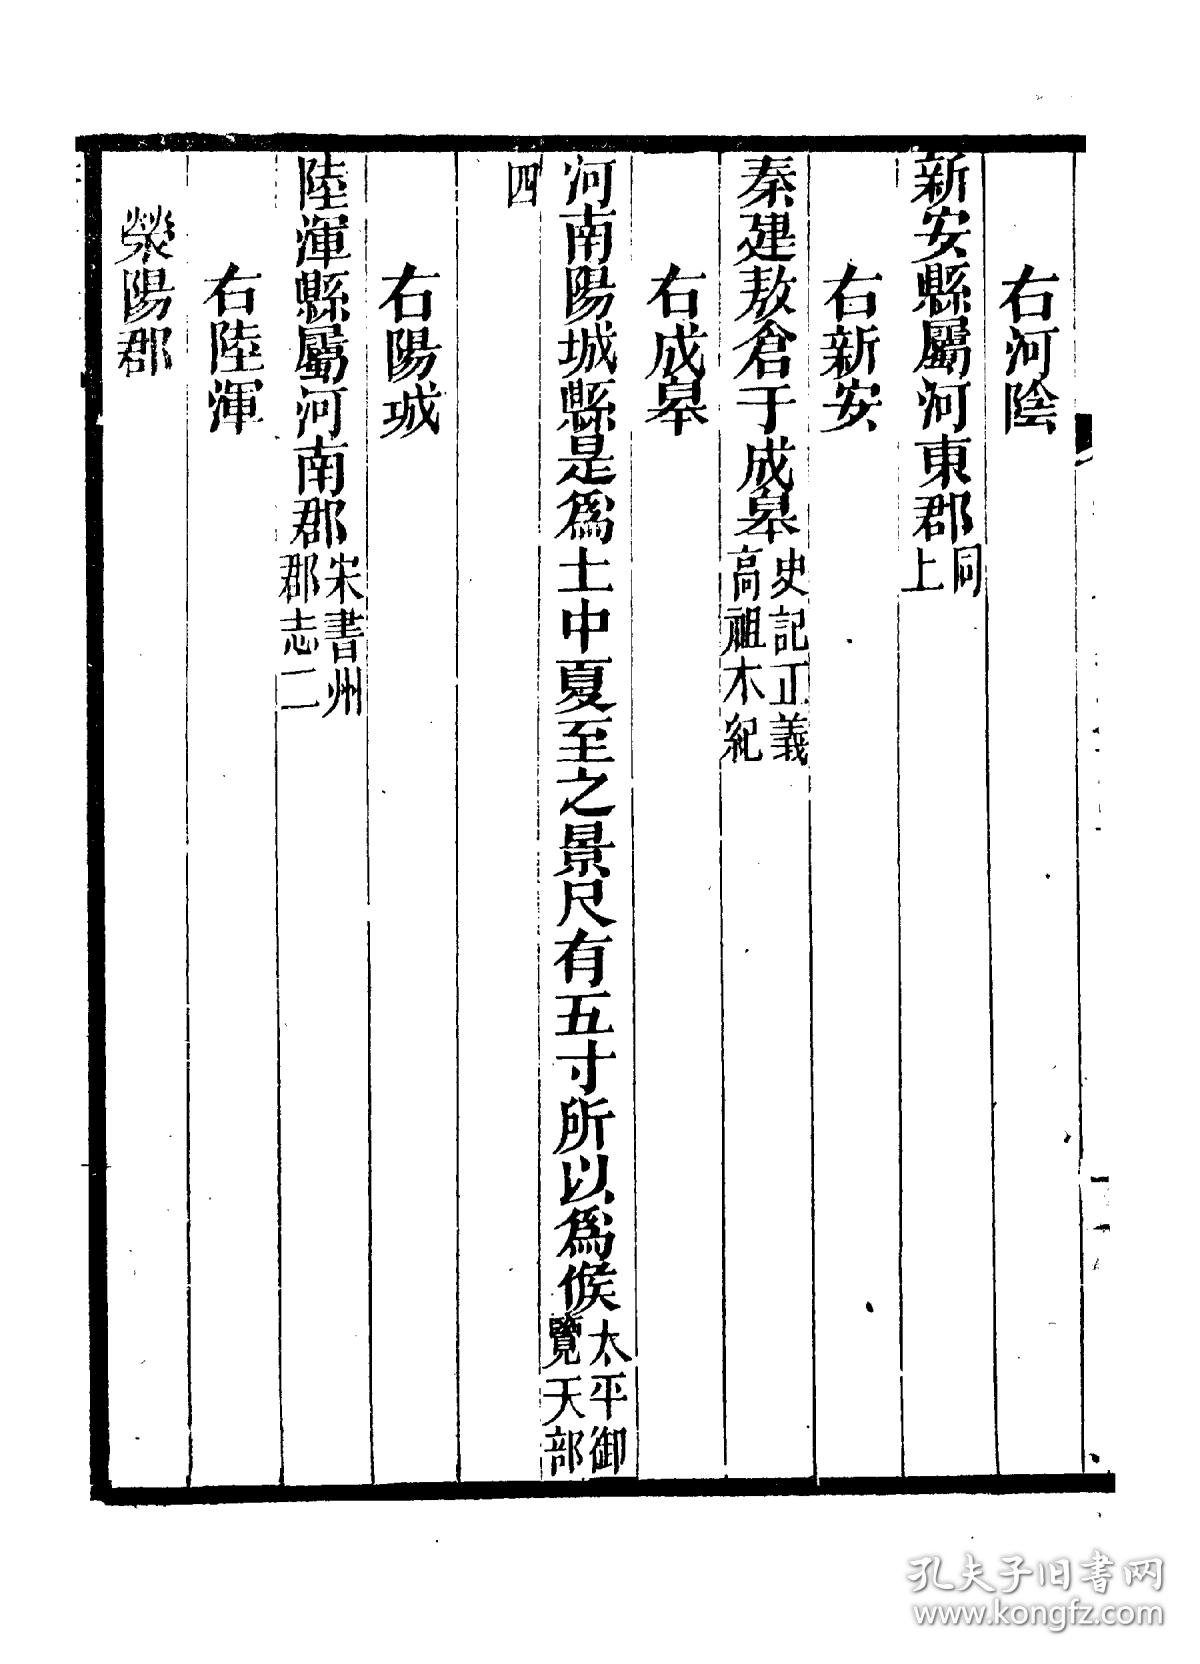 右河陰
新安縣屬河東郡同上
右新安
秦建敖倉于成皋史記正義高祖本紀
右成皋
河南陽城縣是爲土中夏至之景尺有五寸所以爲候太平御覽天部
四
右陽城
陸渾縣屬河南郡宋書州郡志二
右陸渾
滎陽郡
孔夫子旧书网
www.kongfz.com